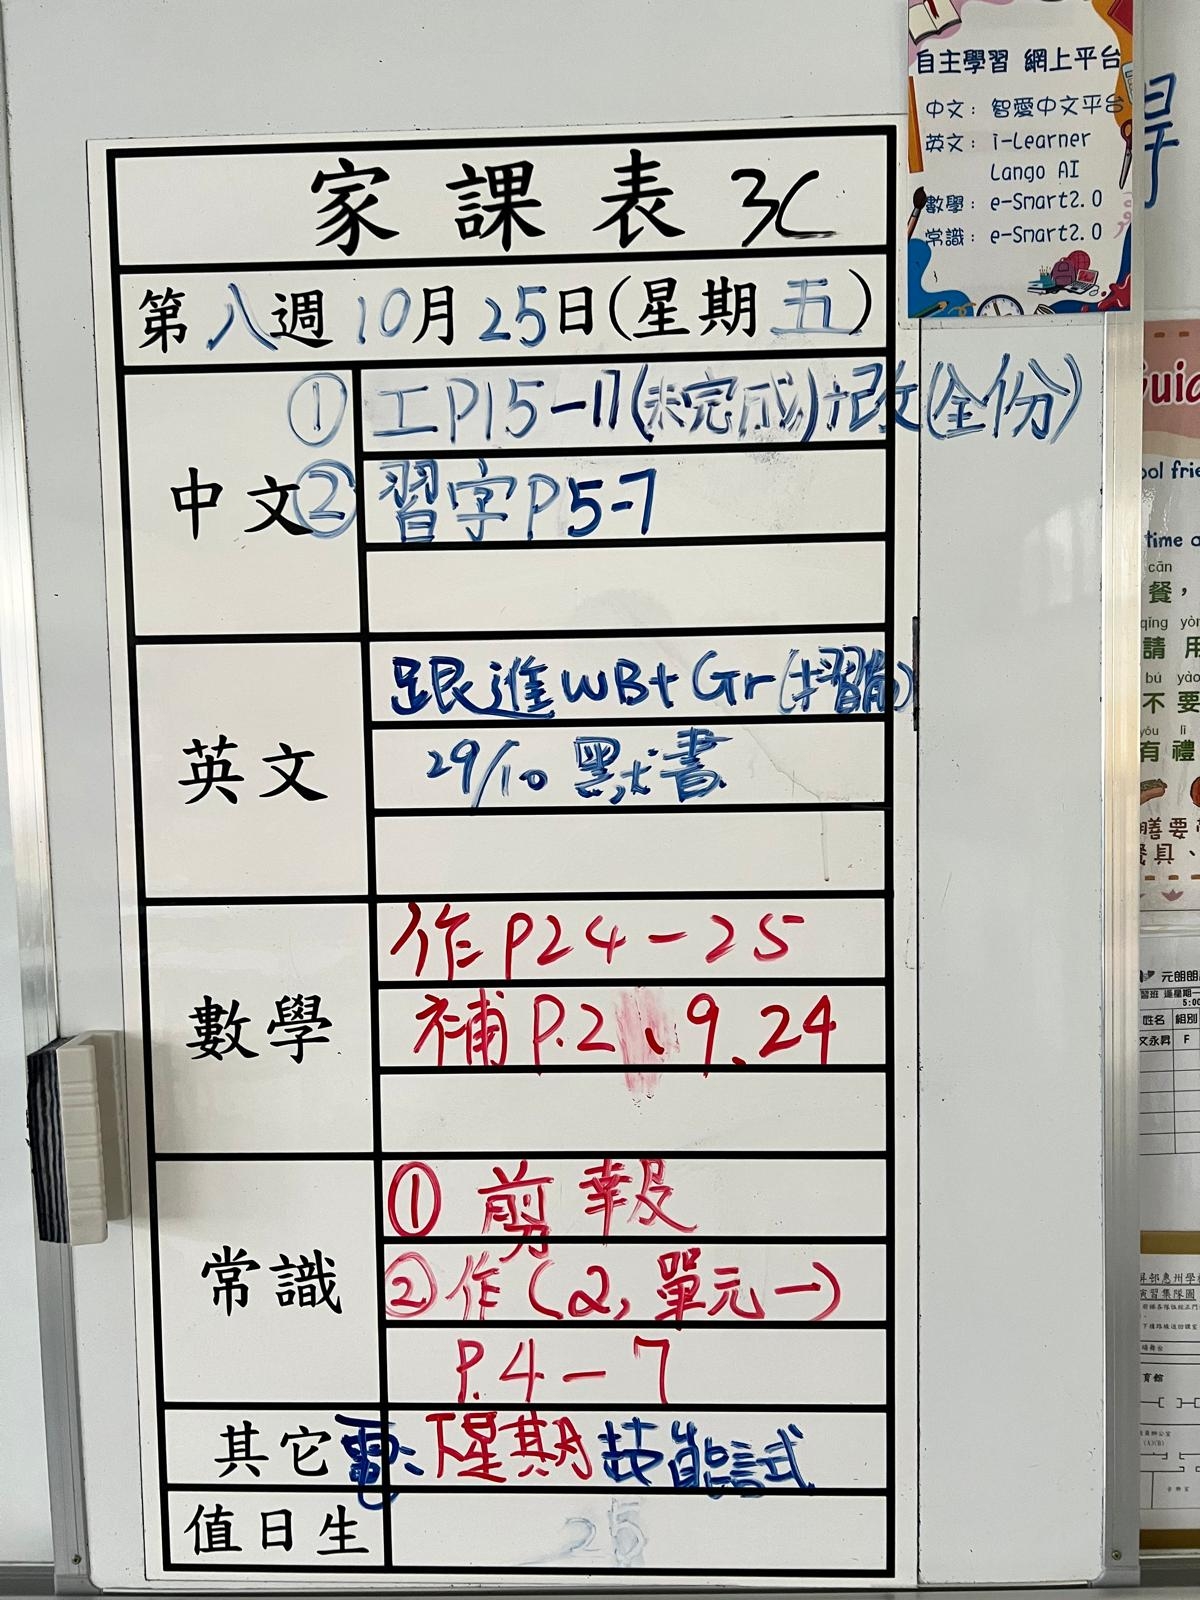 家課表 3C
第八週10月25日(星期五)
中文
① 工P15-17(未完成)+改(全份)
② 習字P5-7
英文
跟進WB+Gr(
29/10 默書
數學
作P24-25
補P.2、9、24
常識
① 剪報
② 作(2,單元一)
P.4-7
其它
電: 下星期技能試
值日生
25
自主學習 網上平台
中文: 智愛中文平台
英文: i-Learner
Lango AI
數學: e-Smart2.0
常識: e-Smart2.0
cān
餐，
qǐng
請用
bú
不要
有禮
具、
姓名 組別
文永昇 F